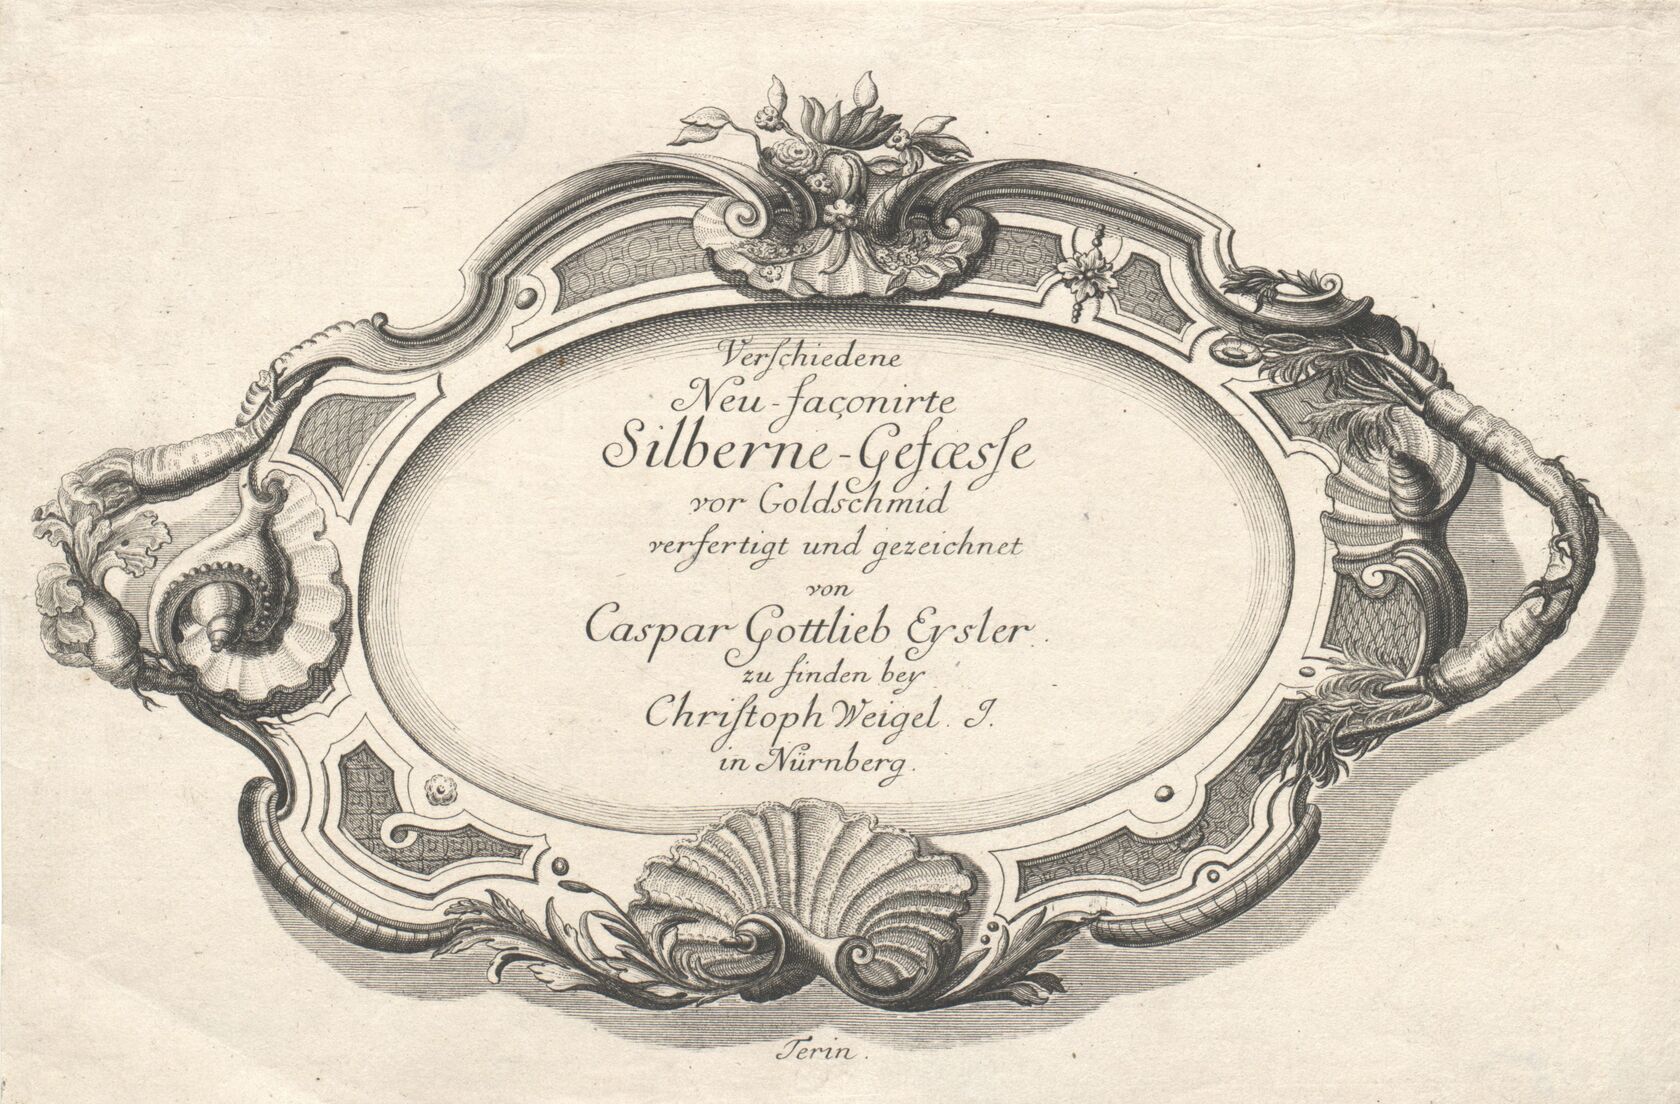 Verſchiedene
Neu-façonirte
Silberne-Gefæsſe
vor Goldschmid
verfertigt und gezeichnet
von
Caspar Gottlieb Eysler.
zu finden bey
Chriſtoph Weigel. J.
in Nürnberg.
Terin.